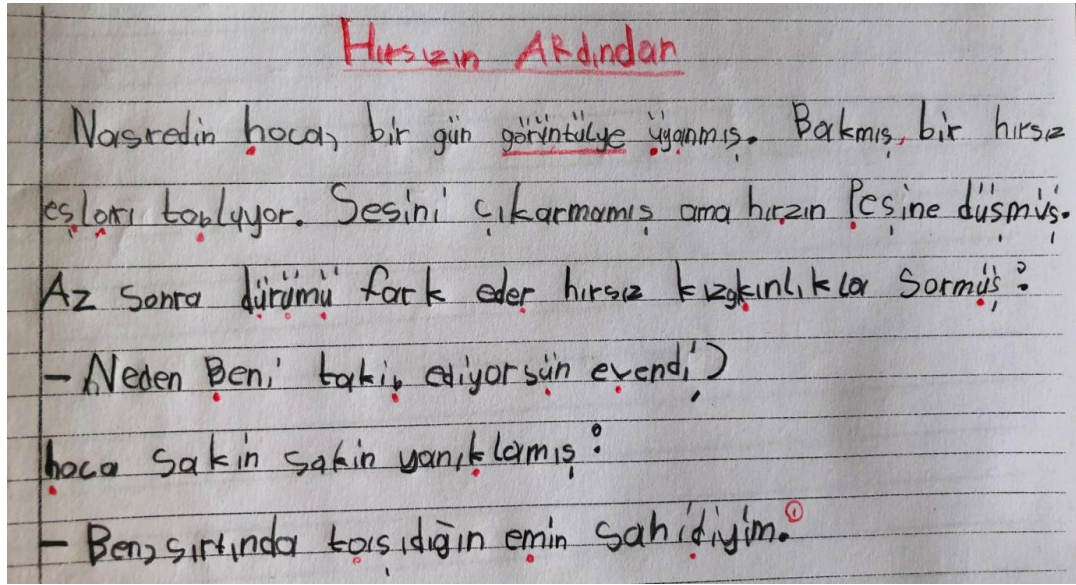 Hırsızın ARdından
Nasredin hoca, bir gün görüntülye üyanmış. Bakmış, bir hırsız
eşları toplıyor. Sesini çıkarmamış ama hırzın Peşine düşmüş.
Az sonra dürümü fark eder hırsız kızgkınlıkla Sormüş:
- Neden Beni takip ediyorsün evendi?
hoca sakin sakin yanıklamış:
- Ben, sırtında taışıdığin emin sahidiyim.